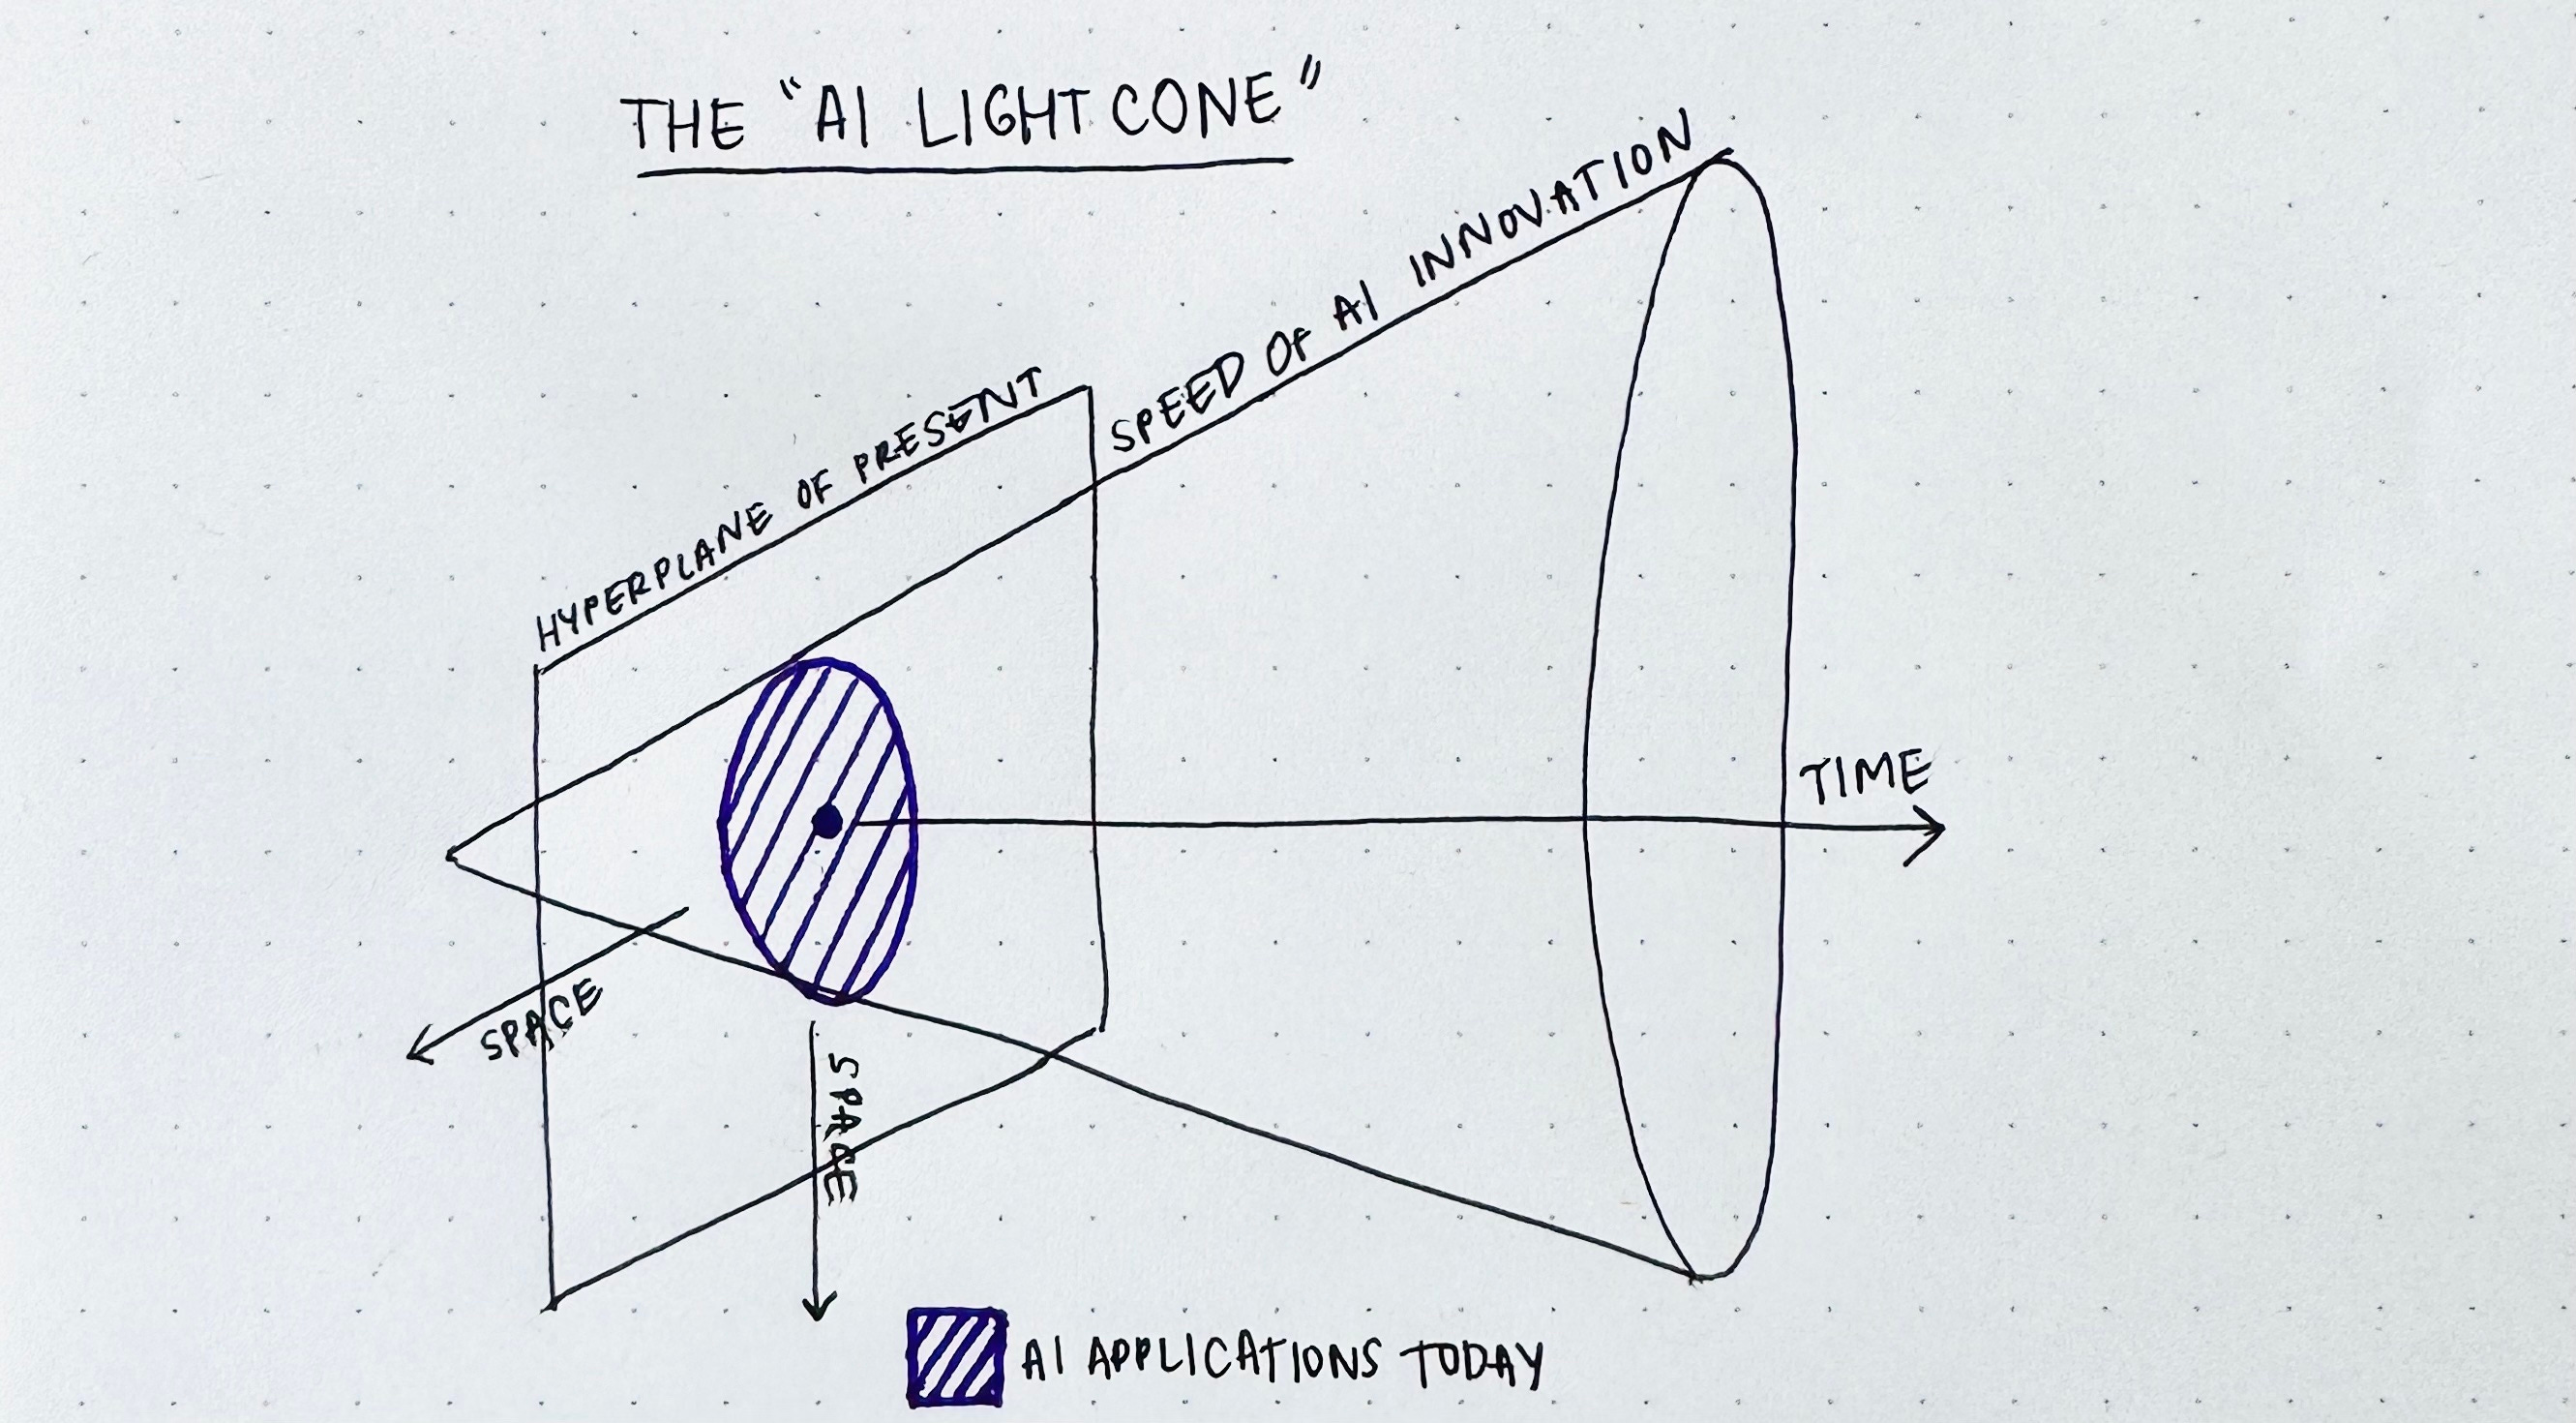 THE "AI LIGHT CONE"
SPEED OF AI INNOVATION
HYPERPLANE OF PRESENT
TIME
SPACE
SPACE
AI APPLICATIONS TODAY